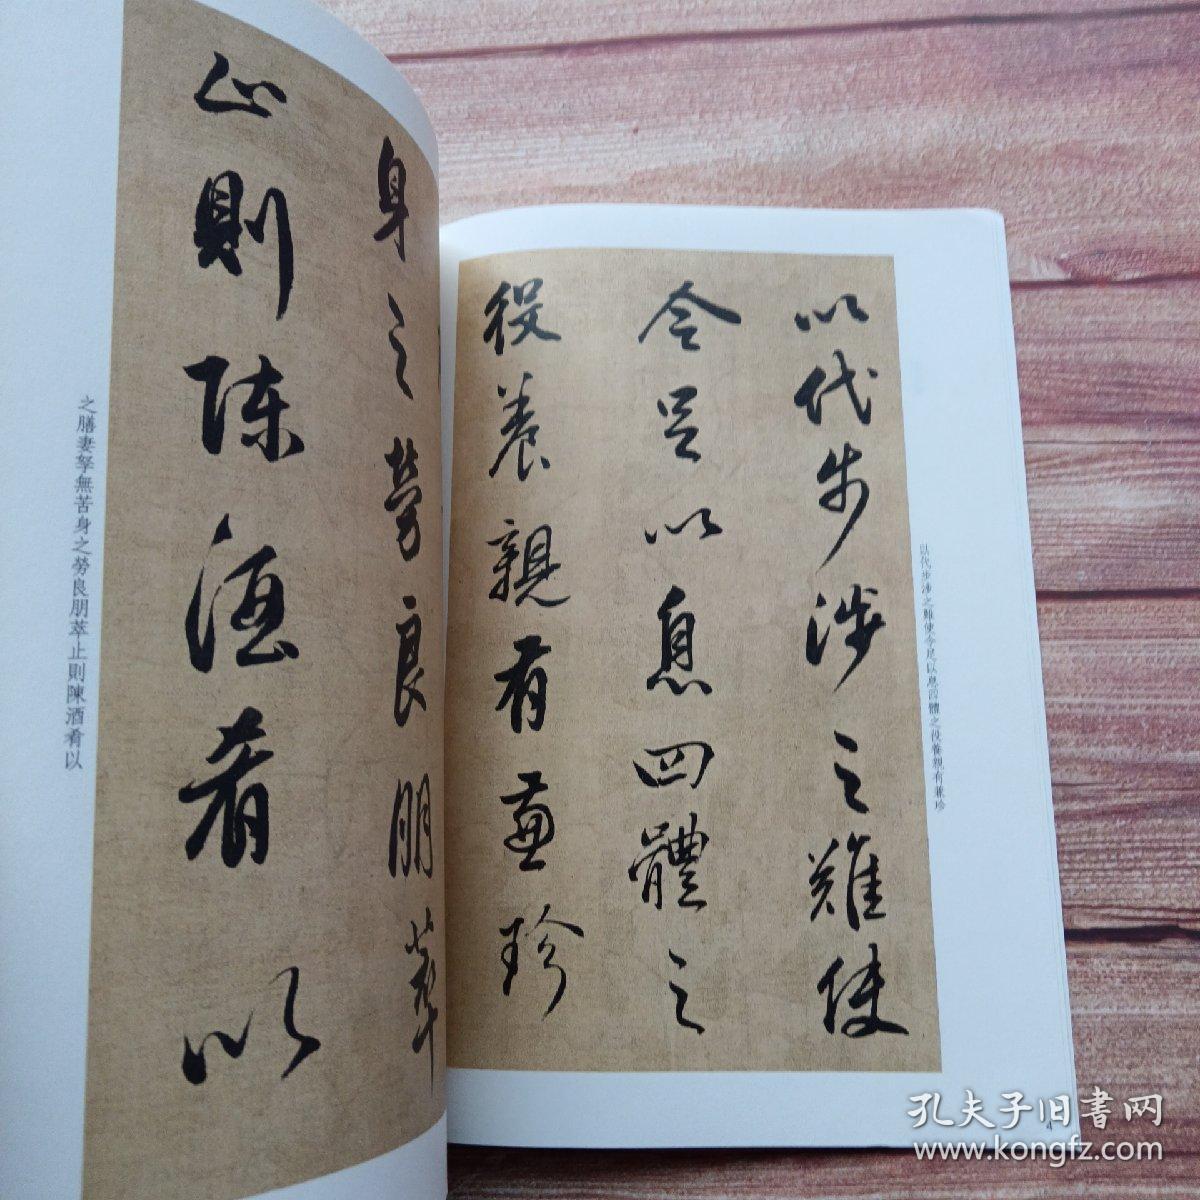 以代步涉之難使
令足以息四體之
役養親有兼珍
以代步涉之難使令足以息四體之役養親有兼珍
身之勞良朋萃
止則陳酒肴以
之膳妻孥無苦身之勞良朋萃止則陳酒肴以
4
孔夫子旧书网
www.kongfz.com